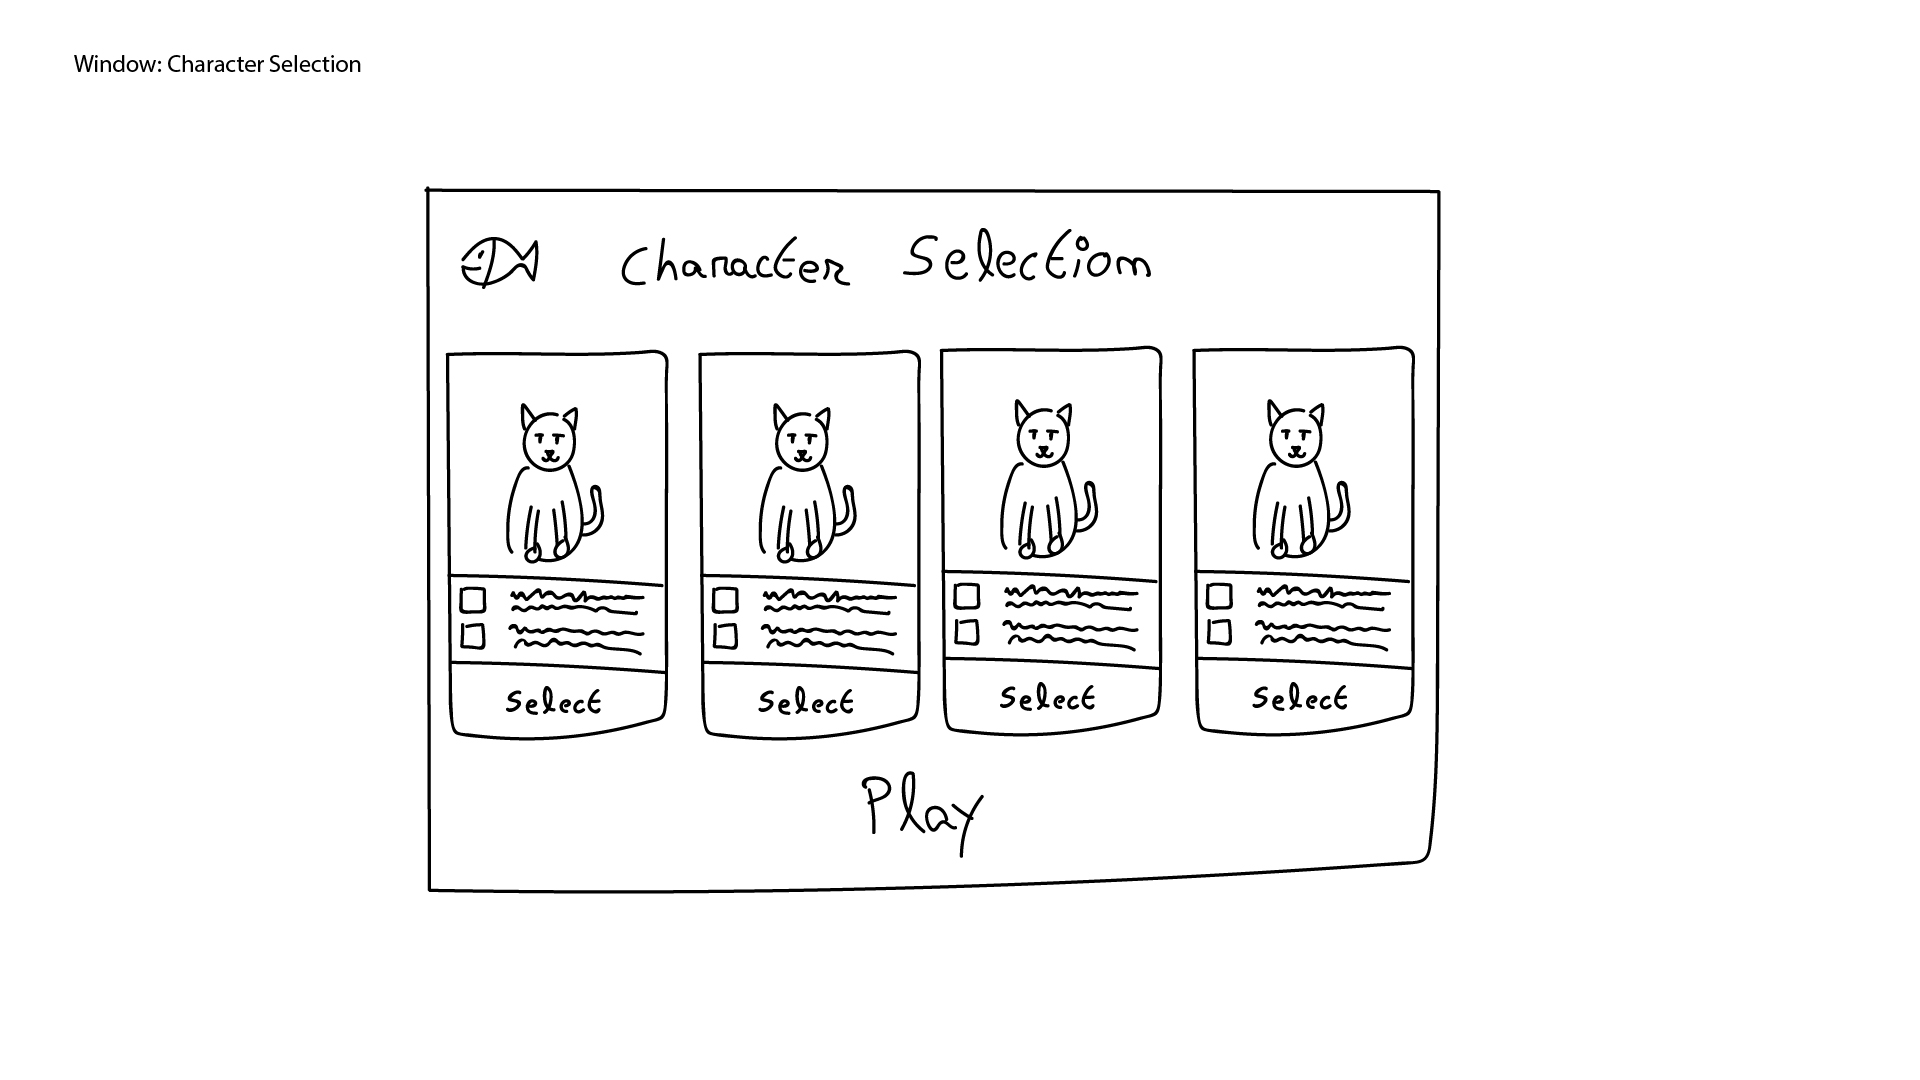 Window: Character Selection
Character Selection
Select
Select
Select
Select
Play